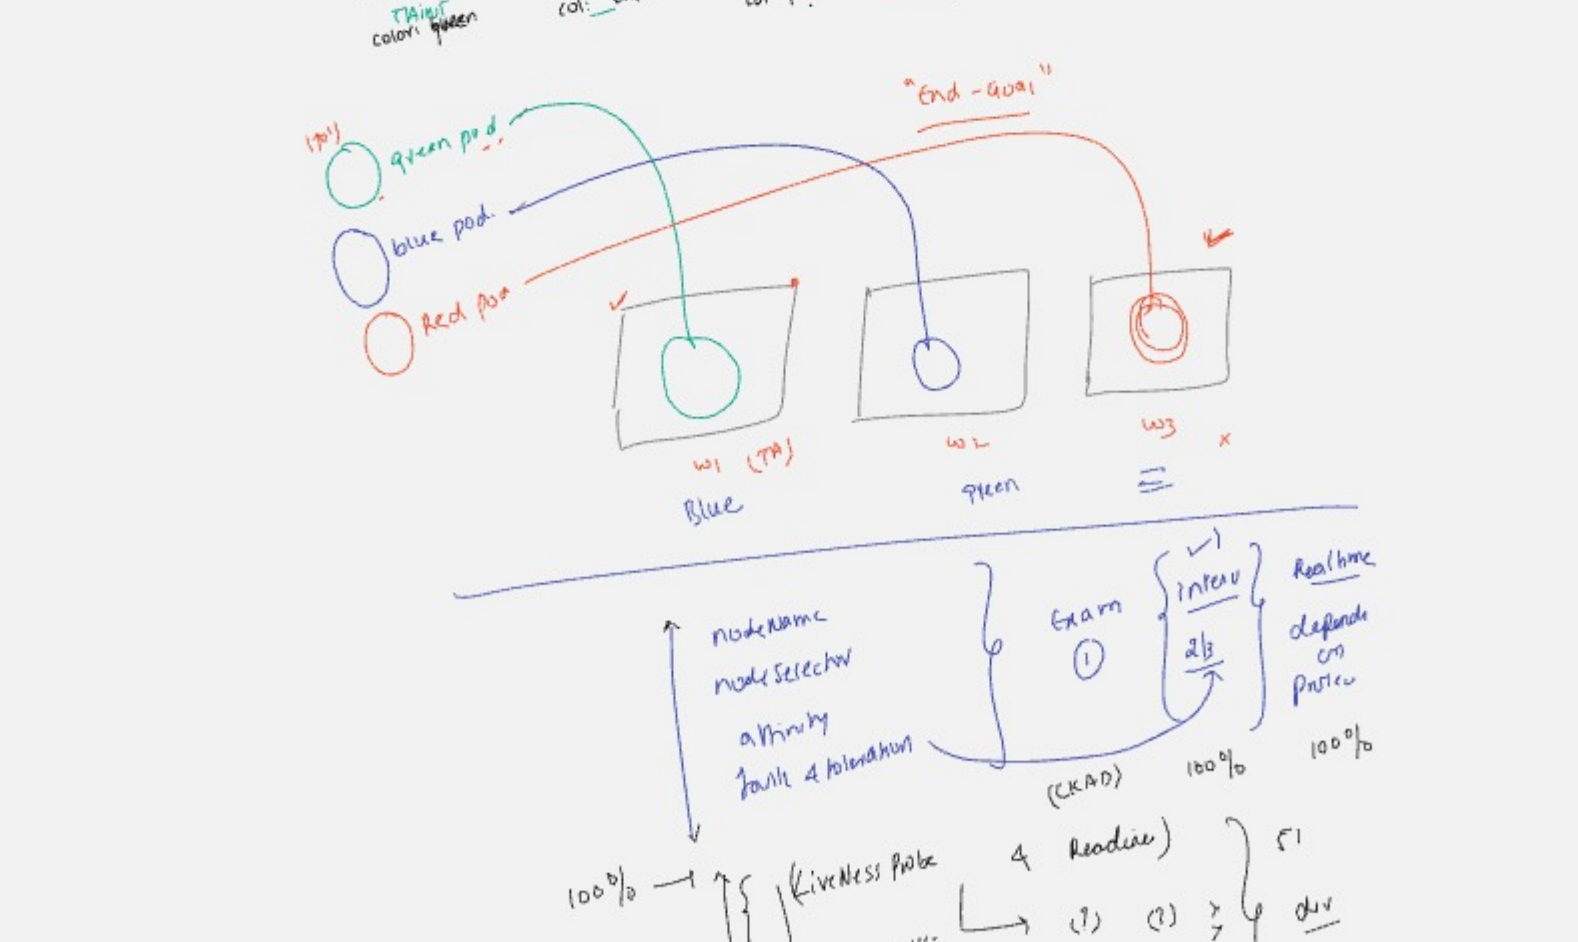 TAint
color: green
col:
"End-Goal"
green pod
blue pod
Red pod
w1 (TA)
w2
w3
x
Blue
green
nodeName
nodeSelector
affinity
taint & toleration
Exam
1
interv
2/3
Realtime
depends
on
(CKAD)
100%
100%
100%
(LiveNess Probe & Readines)
(?) (?)